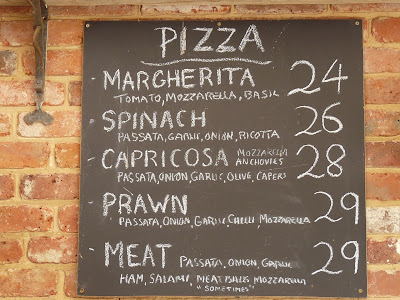 PIZZA
MARGHERITA 24
TOMATO, MOZZARELLA, BASIL
SPINACH 26
PASSATA, GARLIC, ONION, RICOTTA
CAPRICOSA MOZZARELLA ANCHOVIES 28
PASSATA, ONION, GARLIC, OLIVE, CAPERS
PRAWN 29
PASSATA, ONION, GARLIC, CHILLI, MOZZARELLA
MEAT PASSATA, ONION, GARLIC 29
HAM, SALAMI, MEATBALLS MOZZARELLA
"SOMETIMES"